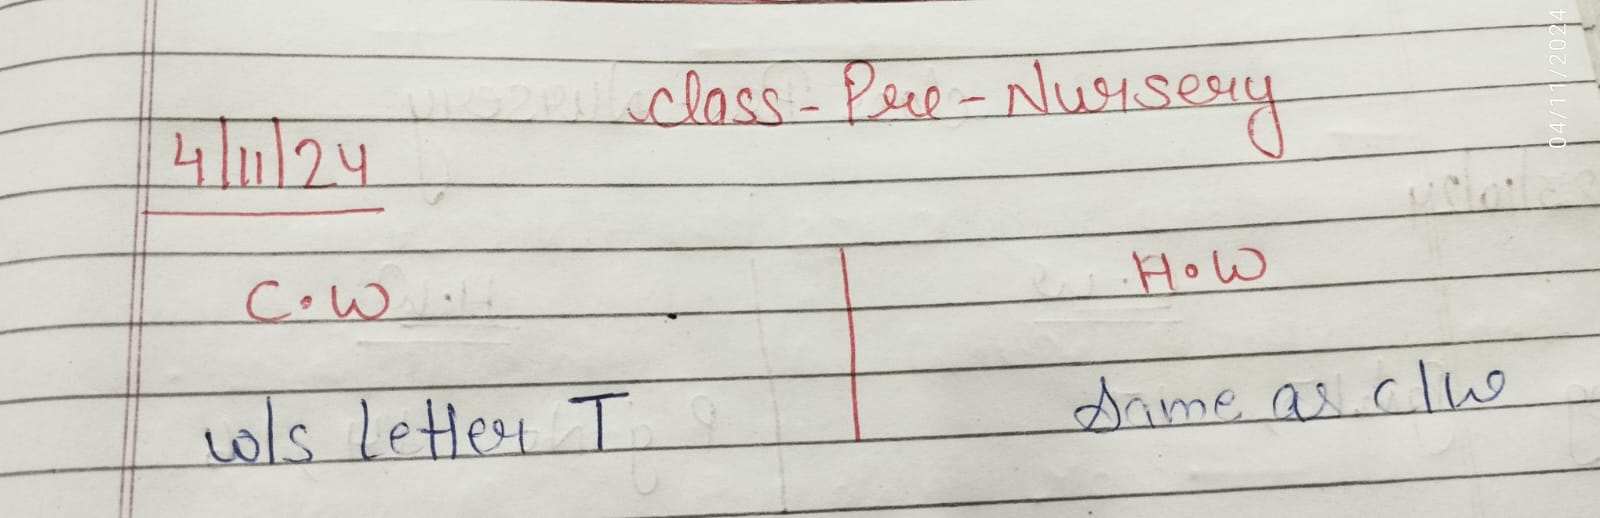 Class - Pre - Nursery
04/11/2024
4/11/24
C.W
H.W
w/s Letter T
Same as c/w